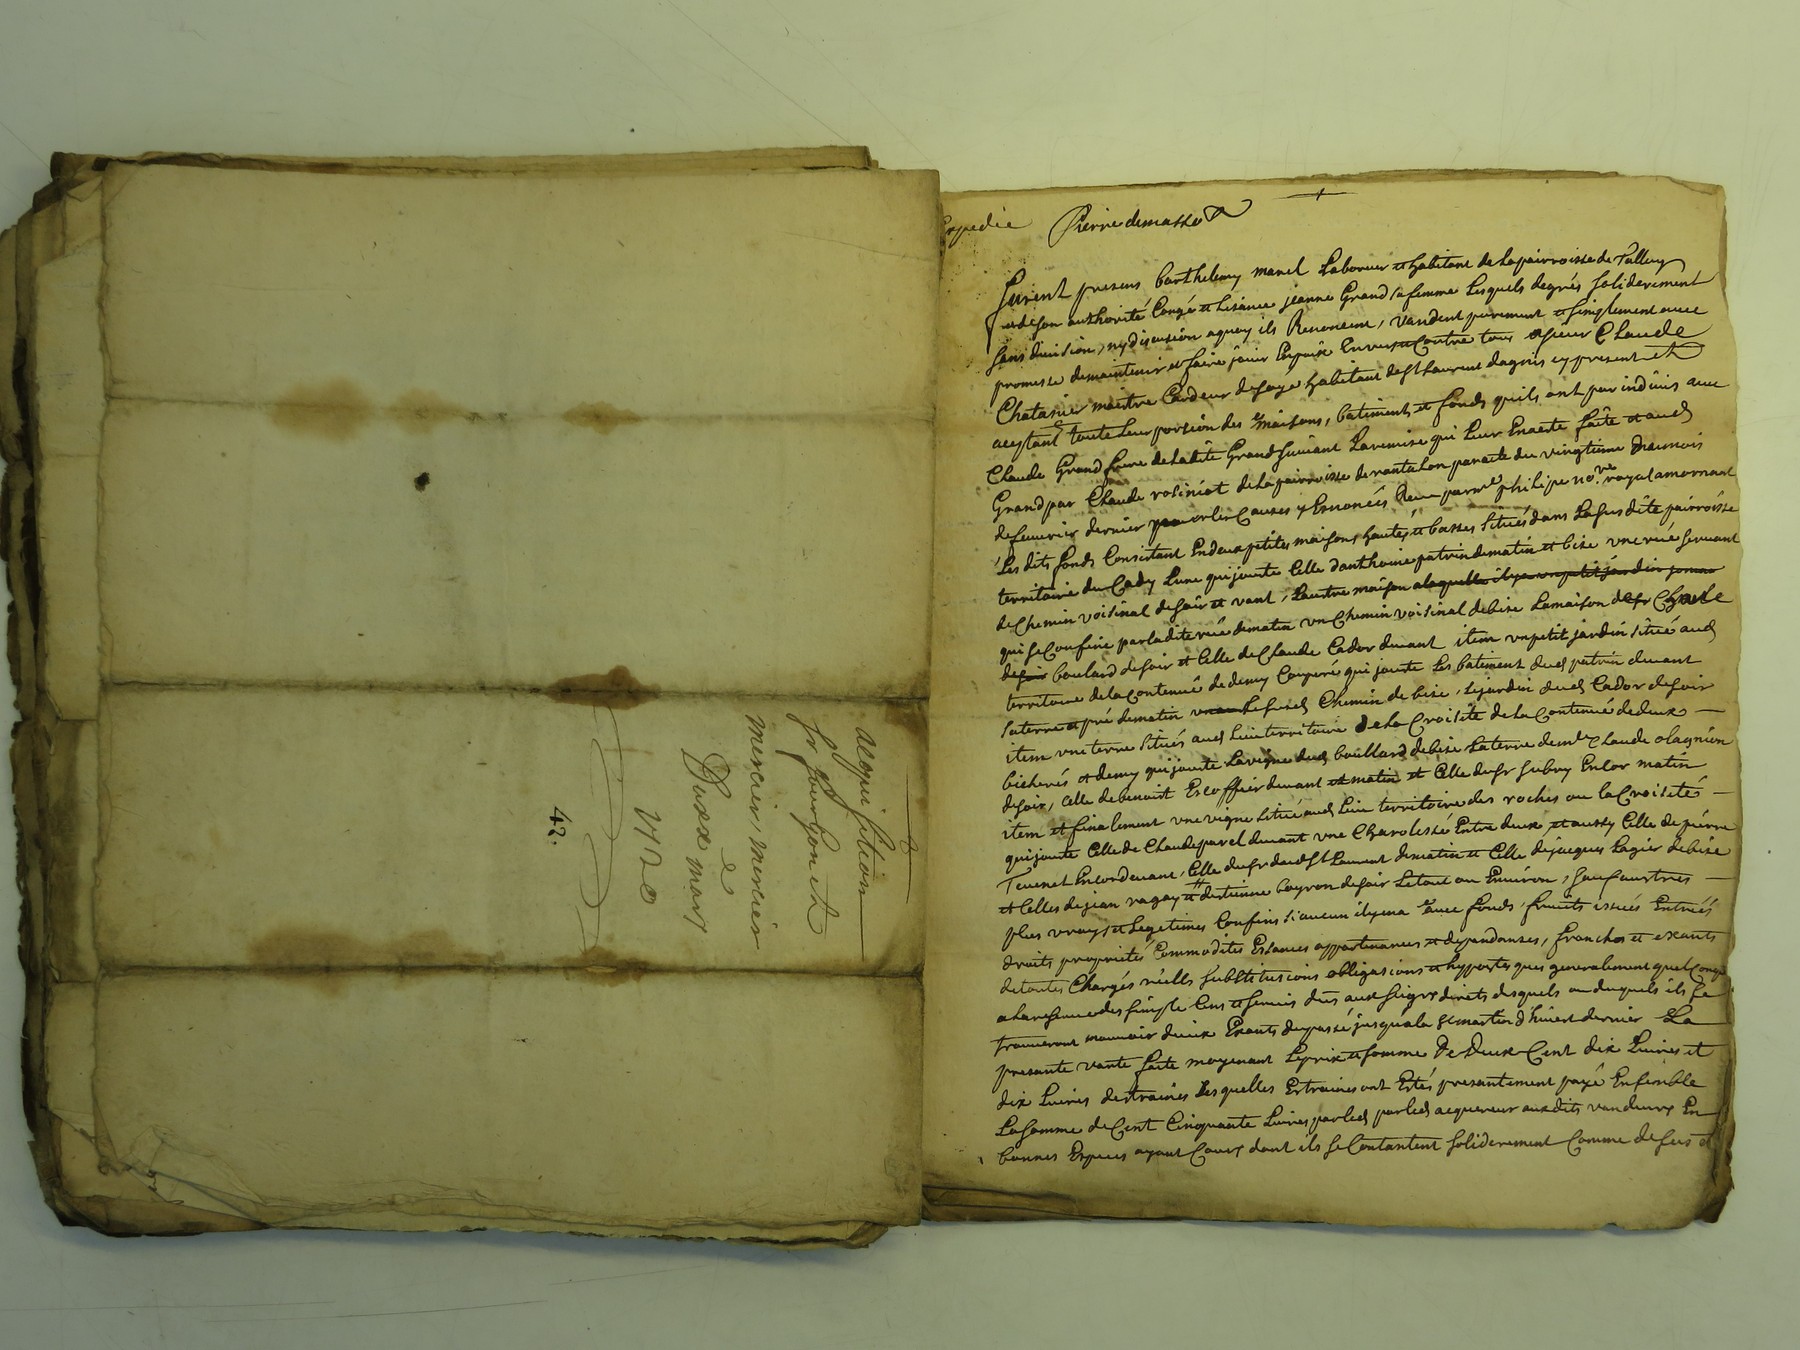 acquisition
Sr fourgon et
mercier, mercier
Du xx mars
1720
42.
Expedié Pierre demasso
furent presens barthelemy manel Laboreur et habitant de la pairroisse de
et de son authorité Congé et Lisance jeanne Grand sa femme Lesquels degrés soliderement
sans division, ny discusion aquoy ils Renoncent, vandent purement et simplement avec
promesse de maintenir et faire jouir En paix Envers et Contre tous a sieur Claude
Chatanier maistre Cardeur de soye habitant de St Laurent dagnis cy present et
aceptant toute leur porsion des maisons, batiments et fonds quils ont par indivis avec
Claude Grand frere de ladite Grand suivant La remise qui leur En a este faite et aud
Grand par Claude rosiniot de la pairroisse de rantalon par acte du vingtieme
de fevrier dernier pour les Causes y Enoncés Receu par me philipe no.re royal a mornant
Les dits fonds Consistant En deux petites maisons hautes et basses situés dans La susdite pairroisse
territoire du Cady Lune qui jouste Celle danthoine patrin de matin et bise une rué servant
de Chemin voisinal de soir et vant, Lautre maison a laquelle il y a un petit jardin
qui se Confine par la dite rué de matin un Chemin voisinal de bise La maison de sr Charle
de soir boulard de soir et Celle de Claude Cador du vant item un petit jardin situé aud
territoire de la Contenué de demy Couperé qui jouste Les batiment dud patrin du vant
La terre et pré de matin Le susd Chemin de bise, Le jardin dud Cador de soir
item une terre situés aud Lieu territoire de la Croisete de la Contenué de deux
bicherés et demy qui jouste La vigne dud boullard de bise La terre de me Claude olagnion
de soir, Celle de benoist Escoffier du vant et matin et Celle du sr subry Encor matin
item et finalement une vigne situé aud Lieu territoire des roches ou la Croisetés
qui jouste Celle de Claude parel du vant une Charolesse Entre deux et aussy Celle de pierre
Tevenet Encor du vant, Celle du sr de St Laurent de matin et Celle de jacques Lagier de bise
et Celles de jean ragay et destienne bayron de soir Le tout ou Environ, sauf autres
plus vrays et Legitimes Confins si aucun il y en a avec fonds, fruits issués Entrées
droits proprietés Commodités Esances appartenances et dependanses, franches et exants
de toutes Charges réells substitusions obligasions et hypoteques generalement quelconque
a la reserve des simple Cens et servis dus aux seigrs directs desquels ou duquels ils se
trouveront mouvoir d'eux Exants du passé jusqua la St martin d'hiver dernier La
presante vante faite moyenant Le prix et somme De Deux Cent dix Livres et
dix Livres destraines Lesquelles Estraines ont Estés presantement payé Ensemble
La somme de Cent Cinquante Livres par led par led acquereur aux dits vandeurs En
bonnes Especes ayant Cours dont ils se Contantent soliderement Comme dessus et